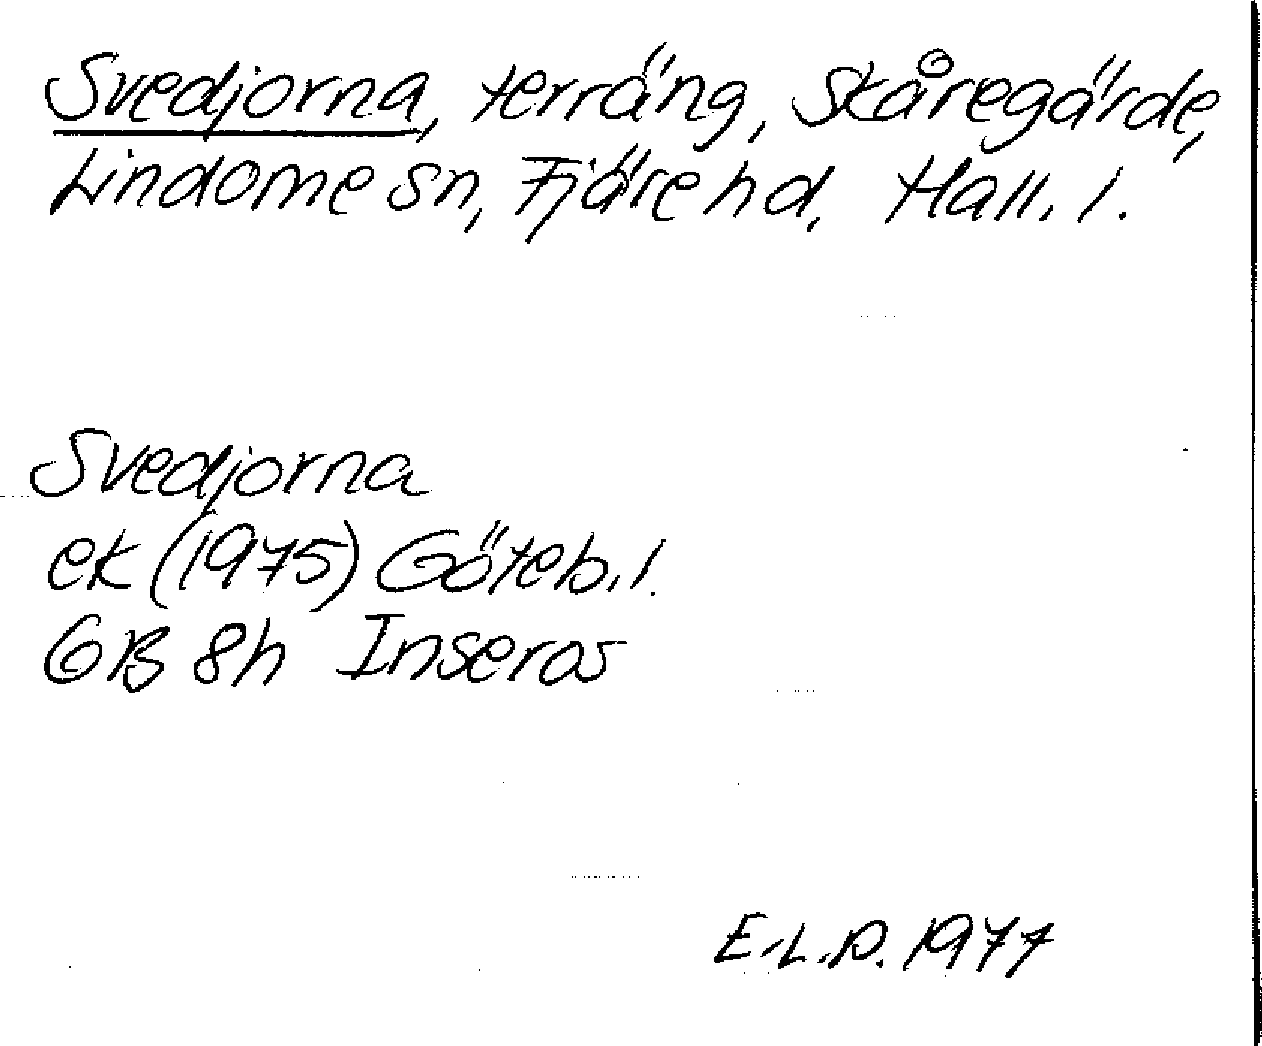 Svedjorna, terräng, Skåregärde,
Lindome sn, Fjäre hd, Hall. l.
Svedjorna
ek (1975) Göteb. l.
GB 8h Inseros
E.L.D. 1977